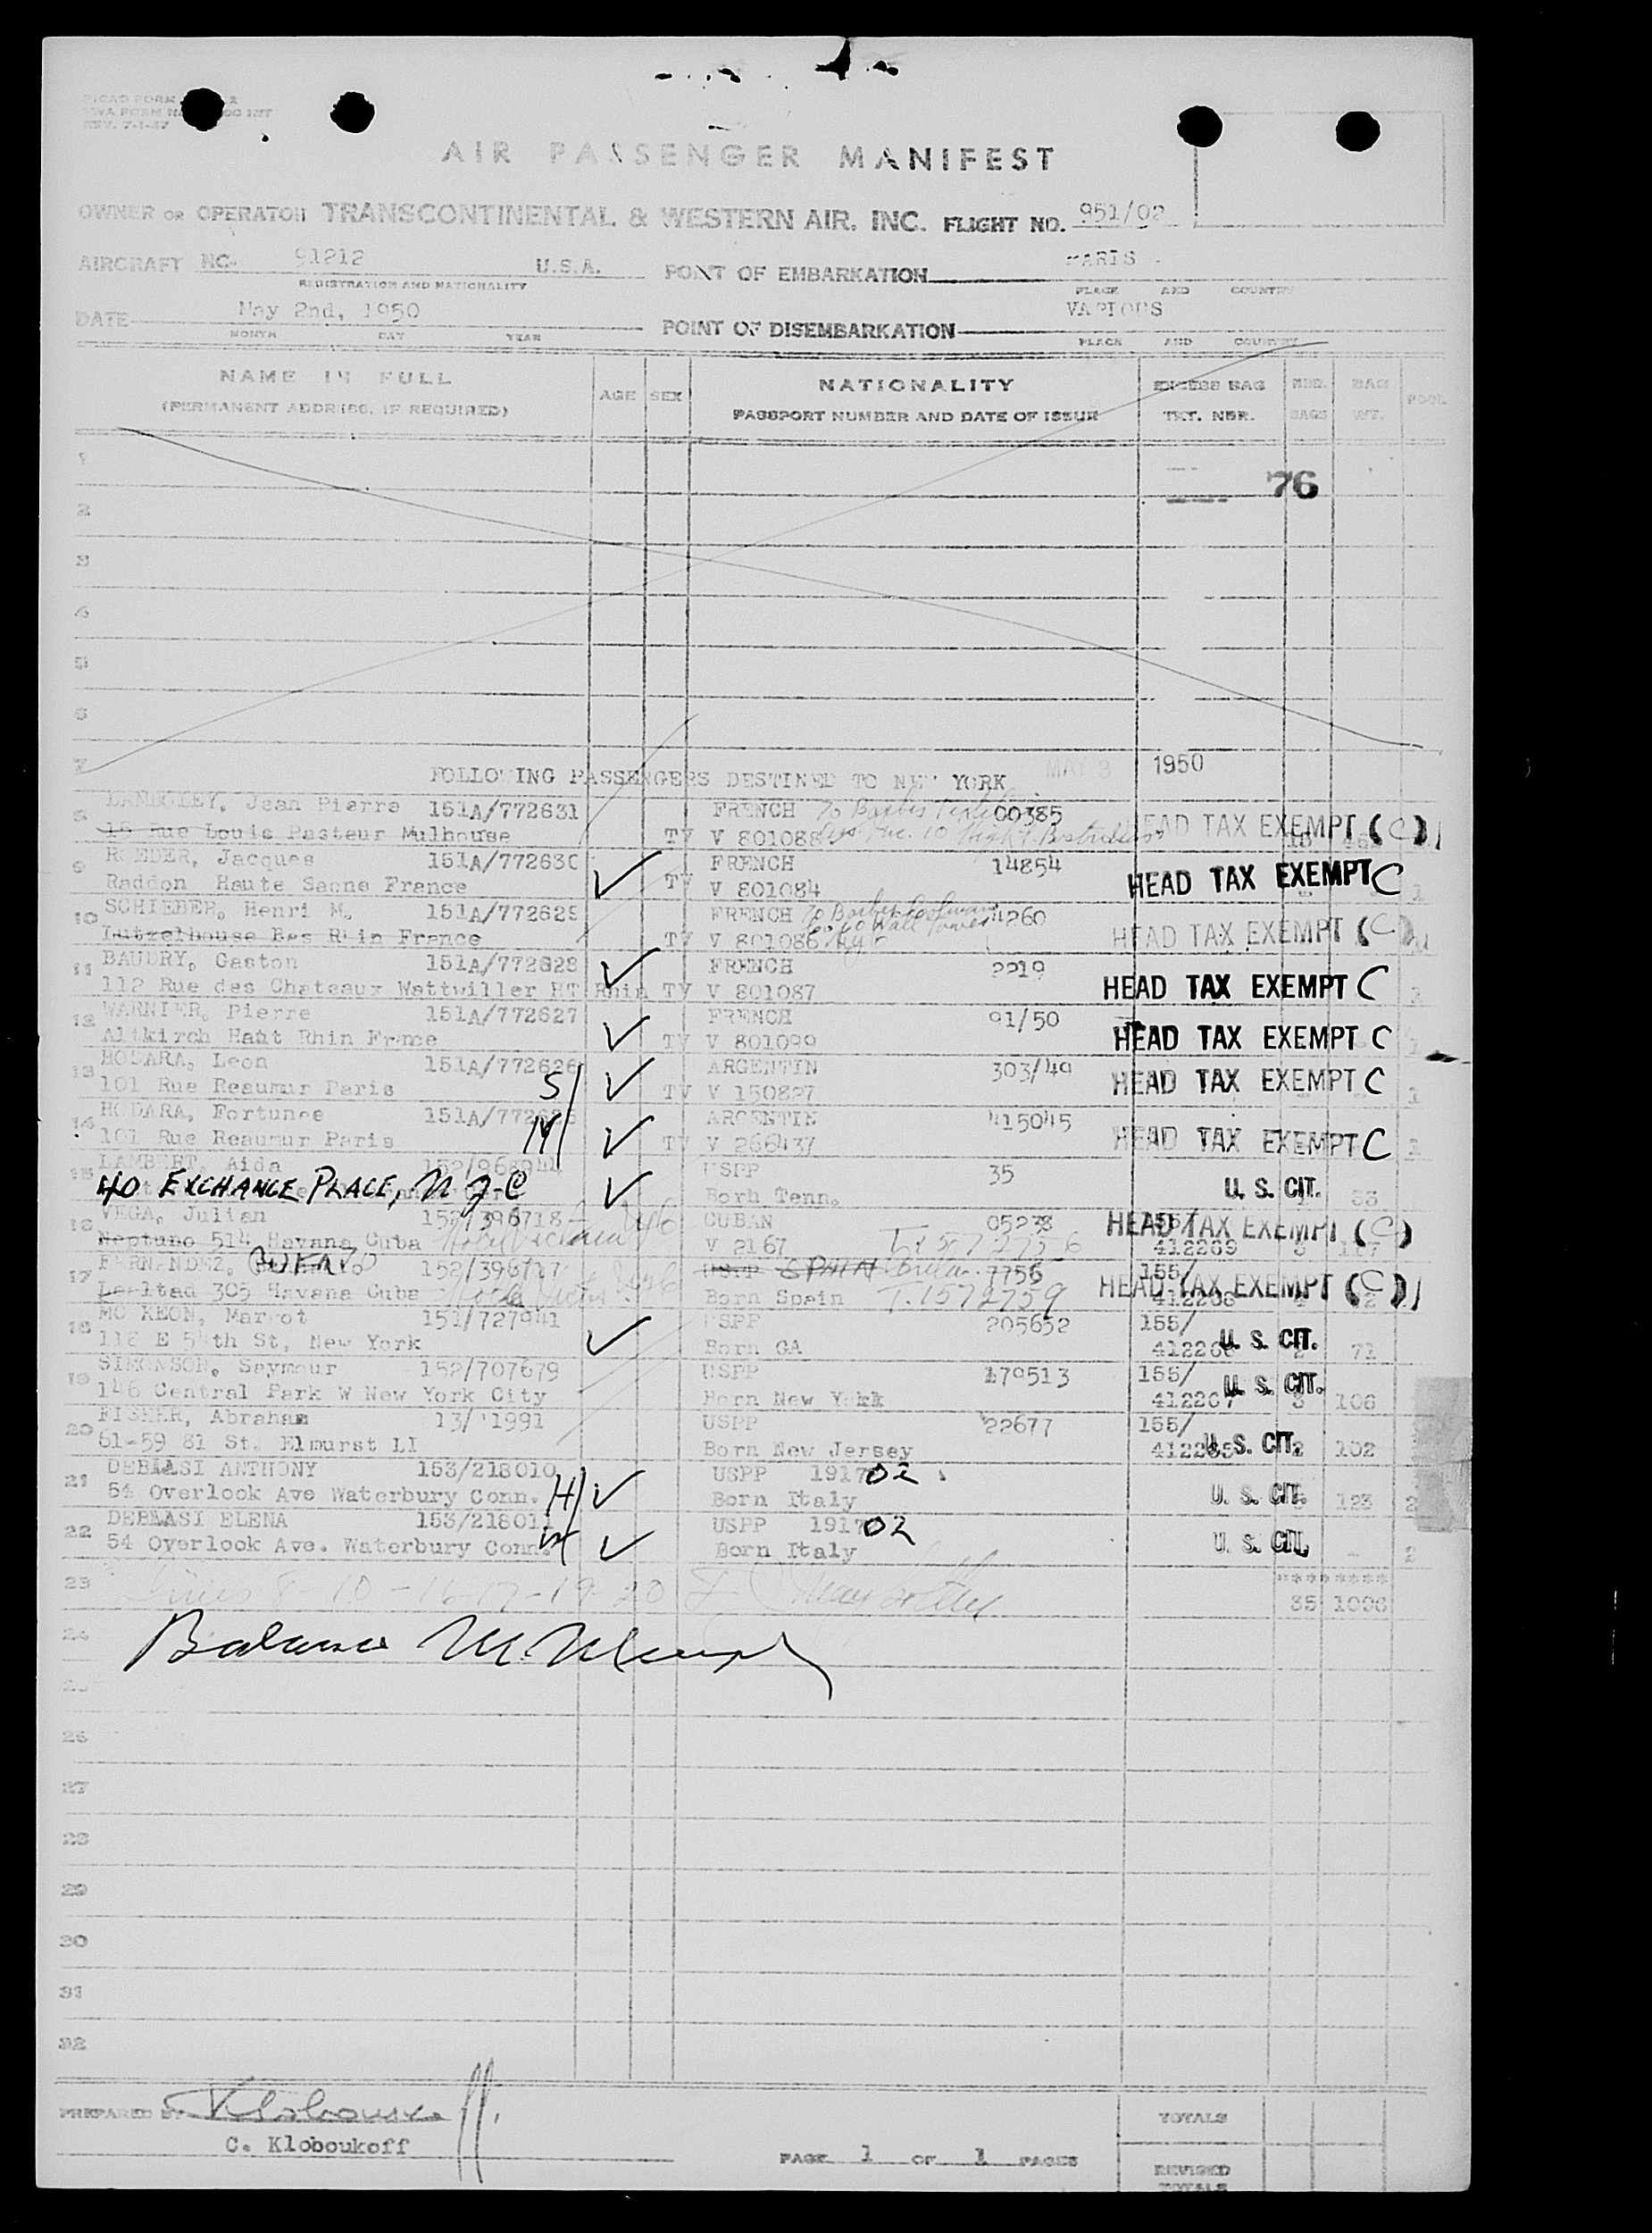 AIR PASSENGER MANIFEST
OWNER OR OPERATOR TRANSCONTINENTAL & WESTERN AIR, INC. FLIGHT NO. 951/02
AIRCRAFT NO. 91212 U.S.A. POINT OF EMBARKATION PARIS
REGISTRATION AND NATIONALITY PLACE AND COUNTRY
DATE May 2nd, 1950 POINT OF DISEMBARKATION VARIOUS
MONTH DAY YEAR PLACE AND COUNTRY
NAME IN FULL AGE SEX NATIONALITY EXCESS BAG BAG
(PERMANENT ADDRESS, IF REQUIRED) PASSPORT NUMBER AND DATE OF ISSUE TKT. NBR. BAGS WT. POOL
1 76
2
3
4
5
6
7 FOLLOWING PASSENGERS DESTINED TO NEW YORK MAY 3 1950
8 Jean Pierre 151A/772631 FRENCH 00385
18 Rue Louis Pasteur Mulhouse TV V 801088 HEAD TAX EXEMPT (C)
9 ROEDER, Jacques 151A/772630 FRENCH 14854
Raddon Haute Saone France TV V 801084 HEAD TAX EXEMPT C 1
10 SCHIEBER, Henri M. 151A/772629 FRENCH 4260
Lutzelhouse Bas Rhin France TV V 801086 HEAD TAX EXEMPT (C)
11 BAUDRY, Gaston 151A/772628 FRENCH 2219
112 Rue des Chateaux Wattwiller HT Rhin TV V 801087 HEAD TAX EXEMPT C
12 WARNIER, Pierre 151A/772627 FRENCH 91/50
Altkirch Haut Rhin France TV V 801099 HEAD TAX EXEMPT C
13 HODARA, Leon 151A/772626 ARGENTIN 303/49
101 Rue Reaumur Paris S/ TV V 150827 HEAD TAX EXEMPT C 1
14 HODARA, Fortunee ARGENTIN 415045
101 Rue Reaumur Paris M/ TV V 266437 HEAD TAX EXEMPT C 1
15 LAMBERT, Aida USPP 35
40 EXCHANGE PLACE, N.Y.C Born Tenn. U. S. CIT.
16 VEGA, Julian 152/396718 CUBAN 05238 155/
Neptuno 514 Havana Cuba V 2167 T.1572756 412269 HEAD TAX EXEMPT (C)
17 FERNANDEZ, 152/396717 USPP SPAIN 7756 155/
Lealtad 305 Havana Cuba Born Spain T.1572759 412268 HEAD TAX EXEMPT (C)
18 MC KEON, Margot USPP 205652 155/
Born GA U. S. CIT. 2 71
19 SIMONSON, Seymour 152/707679 USPP 179513 155/
146 Central Park W New York City Born New York 412267 U. S. CIT. 106
20 FISHER, Abraham USPP 22677 155/
61-59 81 St. Elmurst LI Born New Jersey U. S. CIT. 2 102
21 DEBIASI ANTHONY 153/218010 USPP 191702
54 Overlook Ave Waterbury Conn. H/ Born Italy U. S. CIT. 123 2
22 DEBIASI ELENA 153/218011 USPP 191702
54 Overlook Ave. Waterbury Conn. Born Italy U. S. CIT. 2
23 8-10-16-17-19-20 ********
35 1096
24 Balance
26
27
28
29
30
31
32
PREPARED BY
C. Kloboukoff
PAGE 1 OF 1 PAGES
TOTALS
REVISED TOTALS